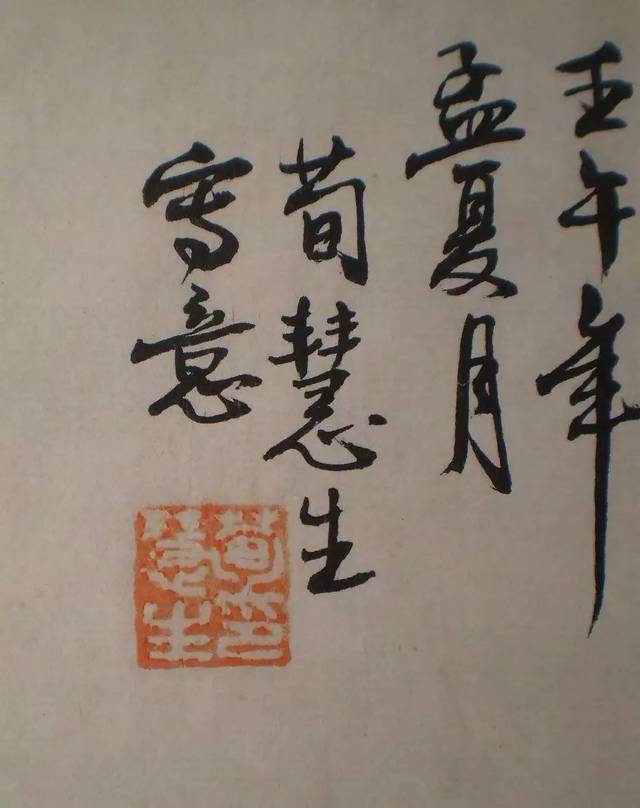 壬午年
孟夏月
荀慧生
寫意
荀慧生印